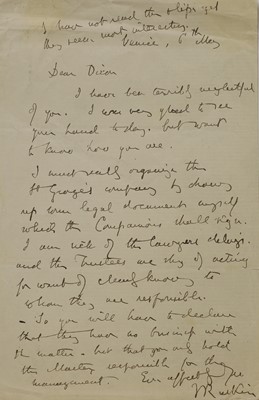 I have not read the slips yet
They seem most interesting.
Venice, 6th May
Dear Dixon
I have been terribly neglectful
of you. I was very glad to see
your hand today. but want
to know how you are.
I must really organize the
St George's company by drawing
up some legal documents myself
which the Companions shall sign.
I am sick of the lawyers delays.
and the Trustees are shy of acting
for want of clearly knowing to
whom they are responsible.
- So you will have to declare
that they have no business with
the matter - but that you only hold
the Master responsible for the
management. Ever affectly Yrs
JRuskin